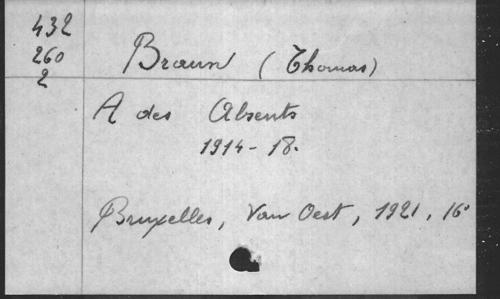 432
260
2
Braun (Thomas)
A des Absents
1914-18.
Bruxelles, Van Oest, 1921, 16°